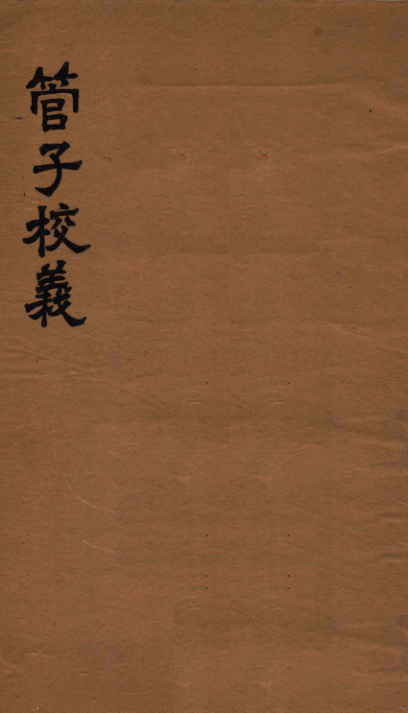 管子校義